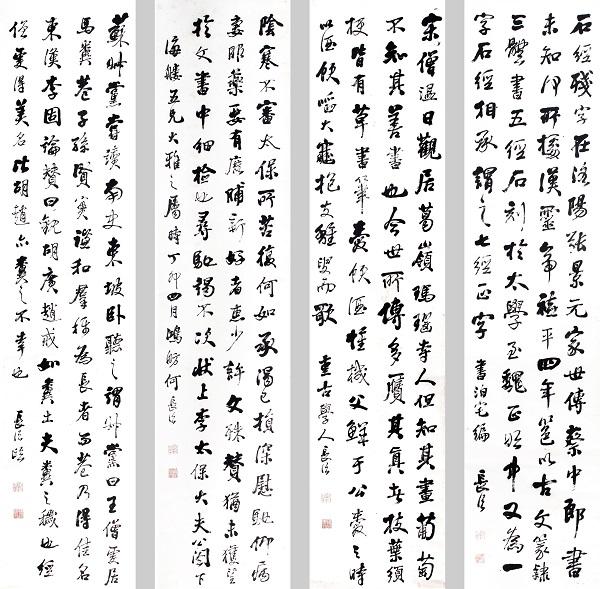 石經殘字在洛陽張景元家世傳蔡中郎書
未知何所據漢靈帝熹平四年邕以古文篆隸
三體書五經石刻於太學至魏正始中又為一
字石經相承謂之七經正字 書泊宅編 長紹
宋僧溫日觀居葛嶺瑪瑙寺人但知其畫葡萄
不知其善書也今世所傳多贋其真者枝葉須
梗皆有草書筆意飲酒惟楊父鮮于公愛之時
以酒飲醉大 抱支離叟而歌 重古學人長
陰寒不審太保所苦復何如承渴已損深慰馳仰所
要脯藥要有鹿脯新好者惠少許文殊贊猶未獲望
於文書中細檢也尋馳謁不次狀上李太保大夫公閣下
海樓五兄大雅之屬時丁卯四月鴻舫何長
蘇叔黨嘗讀南史東坡臥聽之謂叔黨曰王僧虔居
馬糞巷子孫賢實謙和羣稱為長者 馬巷乃得佳名
東漢李固論贊曰視胡廣趙戒如糞土夫糞之穢也經
僧虔得美名比胡趙亦糞之不幸也 長